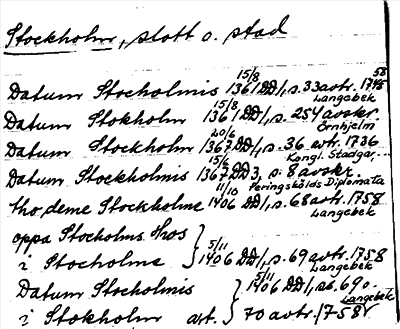 Stockholm, slott o. stad
Datum Stocholmis 15/8 1361 DD1, s. 33 avtr. 1758 Langebek
Datum Stokholm 15/8 1361 DD1, s. 254 avskr. Örnhjelm
Datum Stockholm 20/6 1367 DD1, s. 36 avtr. 1736 Kongl. Stadgar,...
Datum Stockholmis 15/6 1367 DD3, s. 8 avskr. Peringskölds Diplomata
tho, deme Stockholme 11/10 1406 DD1, s. 68 avtr. 1758 Langebek
oppa Stocholms Hws
i Stocholme } 5/11 1406 DD1, s. 69 avtr. 1758 Langebek
Datum Stocholmis } 5/11 1406 DD1, s. 69 o.
i Stokholm avt. 70 avtr. 1758 Langebek